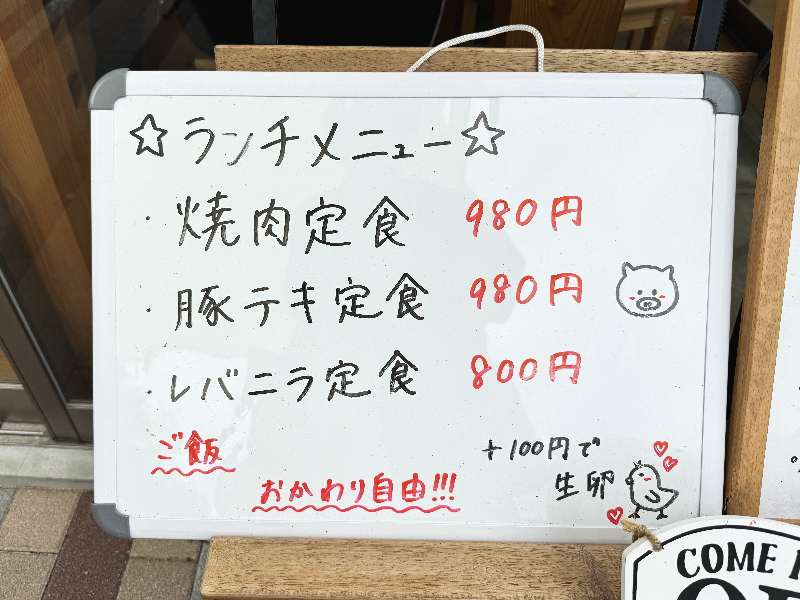 ☆ランチメニュー☆
・焼肉定食 980円
・豚テキ定食 980円
・レバニラ定食 800円
ご飯
おかわり自由!!!
+100円で
生卵
COME